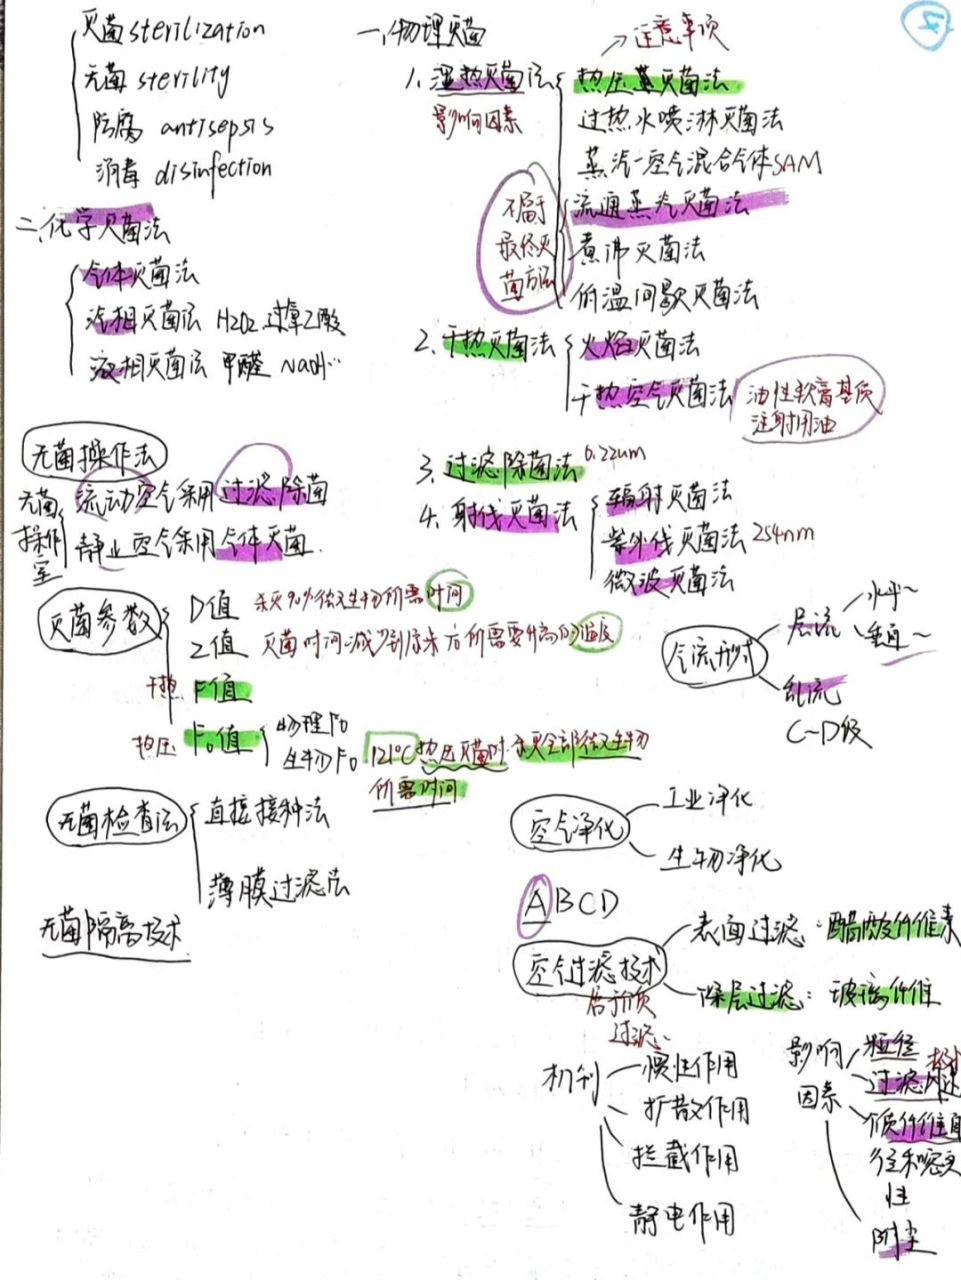 灭菌 sterilization
无菌 sterility
防腐 antisepsis
消毒 disinfection
二、化学灭菌法
气体灭菌法
汽相灭菌法 H2O2 过氧乙酸
液相灭菌法 甲醛 NaOH…
一、物理灭菌
→注意事项
1. 湿热灭菌法
影响因素
热压蒸灭菌法
过热水喷淋灭菌法
蒸汽-空气混合气体SAM
流通蒸汽灭菌法
煮沸灭菌法
低温间歇灭菌法
不属于
最终灭
菌方法
2. 干热灭菌法
火焰灭菌法
干热空气灭菌法
油性软膏基质
注射用油
3. 过滤除菌法 0.22um
4. 射线灭菌法
辐射灭菌法
紫外线灭菌法 254nm
微波灭菌法
无菌操作法
无菌
操作
室
流动空气采用过滤除菌
静止空气采用气体灭菌
灭菌参数
D值 杀灭90%微生物所需时间
Z值 灭菌时间减少到原来 所需要升高的温度
干热 F值
热压 F0值
物理F0
生物F0
121℃热压灭菌时杀灭全部微生物
所需时间
无菌检查法
直接接种法
薄膜过滤法
无菌隔离技术
气流形式
层流
水平~
垂直~
乱流
C~D级
空气净化
工业净化
生物净化
ABCD
空气过滤技术
属于介质
过滤
表面过滤:醋酸纤维素
深层过滤:玻璃纤维
机制
惯性作用
扩散作用
拦截作用
静电作用
影响
因素
粒径
过滤风速
介质纤维直
径和密实
性
附尘